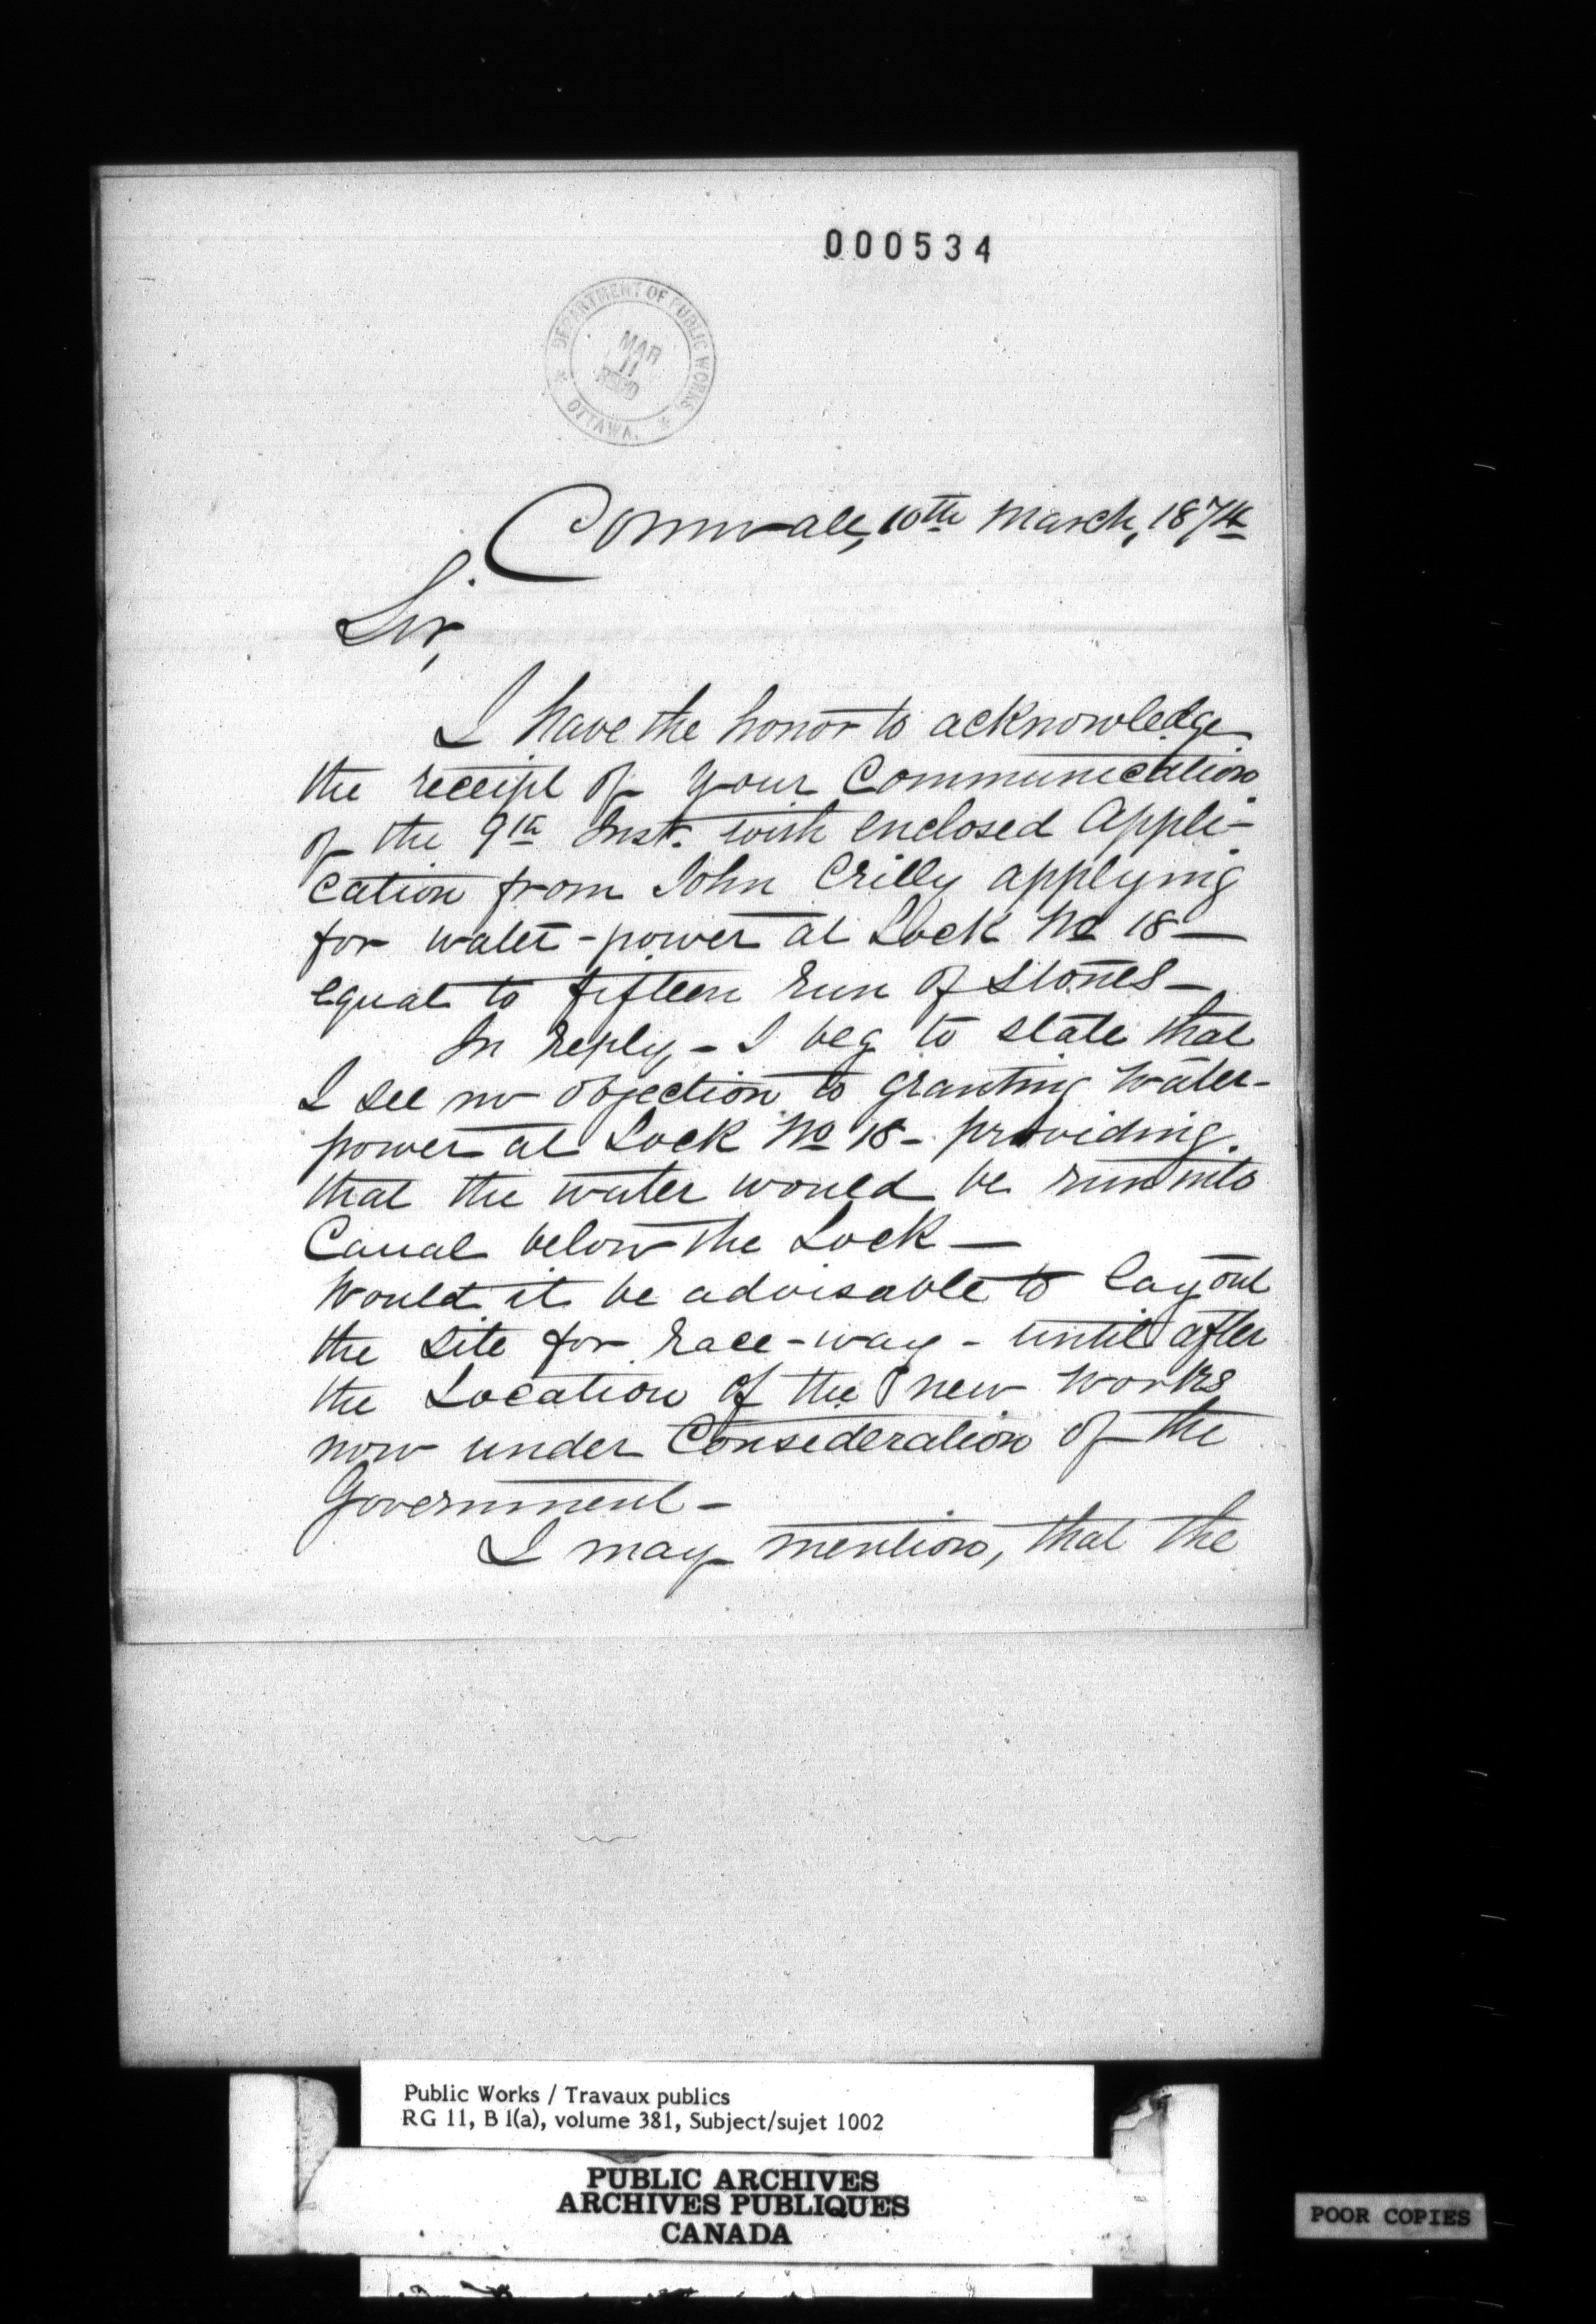 000534
DEPARTMENT OF PUBLIC WORKS
MAR
11
REC'D
* OTTAWA. *
Cornwall, 10th March, 1874
Sir,
I have the honor to acknowledge
the receipt of your Communication
of the 9th Inst. with enclosed Appli-
cation from John Crilly applying
for water-power at Lock No 18 —
equal to fifteen run of stones —
In reply, - I beg to state that
I see no objection to granting water-
power at Lock No 18 - providing
that the water would be run into
Canal below the Lock —
Would it be advisable to lay out
the site for race-way - until after
the Location of the new works
now under Consideration of the
Government -
I may mention, that the
Public Works / Travaux publics
RG 11, B 1(a), volume 381, Subject/sujet 1002
PUBLIC ARCHIVES
ARCHIVES PUBLIQUES
CANADA
POOR COPIES